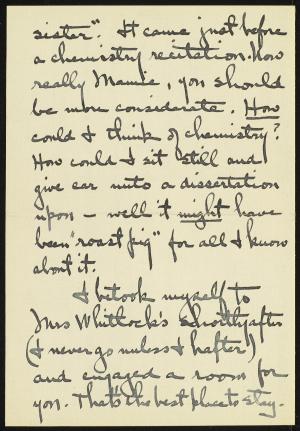 sister". It came just before
a chemistry recitation. Now
really Mamie, you should
be more considerate. How
could I think of chemistry?
How could I sit still and
give ear unto a dissertation
upon – well it might have
been "roast pig" for all I know
about it.
I betook myself to
Mrs Whitlock's shortly after
(I never go unless I hafter!)
and engaged a room for
you. That's the best place to stay.